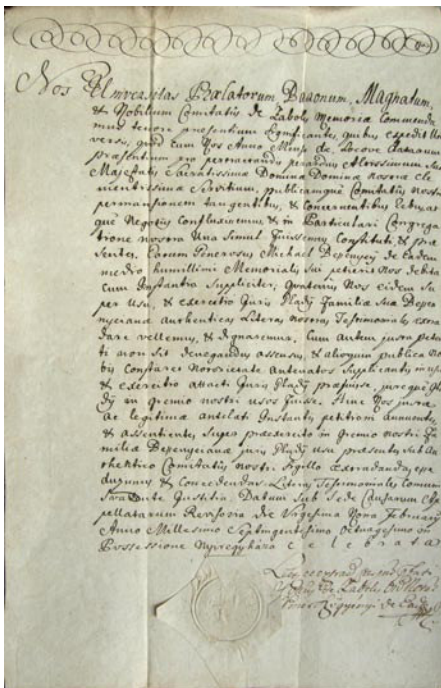 Nos Universitas Prælatorum, Baronum, Magnatum,
& Nobilium Comitatus de Zabolcs Memoriæ Commenda
mus tenore præsentium significantes, quibus expedit Uni
versis, quod cum Nos Anno Mense die Locove Datarum
præsentium pro peractandis
Majestatis Sacratissimæ Dominæ Dominæ nostræ cle
mentissimæ Servitium, publicamque Comitatus nostri
permansionem tangentibus, & concernentibus Rebus, at
que Negotiis confluxissemus & in Particulari Congrega
tione nostra Una Simul fuissemus constituti, & præ
sentes, Earum Generosus Michael Depenyey de Eadem
medio humillimi Memorialis sui petierit Nos debita
cum Instantia Suppliciter, quatenus Nos eidem Su
per Usu, & exercitio Juris Gladij Familiæ suæ Depe
nyeiana authenticas Literas nostras Testimoniales extra
dare vellemus, & dignaremur. Cum autem justa peten
ti non sit denegandus assensus, & alioquin publica No
bis constaret Notorietate Antenatos Supplicantis in usu
& exercitio attacti Juris Gladij præfuisse, jureque Gla
dij in Gremio nostri usos fuisse. Hinc Nos justæ
Ac legitimæ antelati Instantis petitioni annuentes,
& assentientes, Super præexercito in Gremio nostri Fa
milia Depenyeiana juris Gladij Usu præsentes, sub Au
thentico Comitatus nostri Sigillo extradandas, 
duximus & concedendas Literas Testimoniales, communi
suadente Justitia Datum Sub Sede Causarum Ap
pellatarum Revisoria die Vigesima Nona February
Anno Millesimo Septingentesimo Octuagesimo in
Possessione Nyregyhaza celebrata
de Zabolcs Ord Not